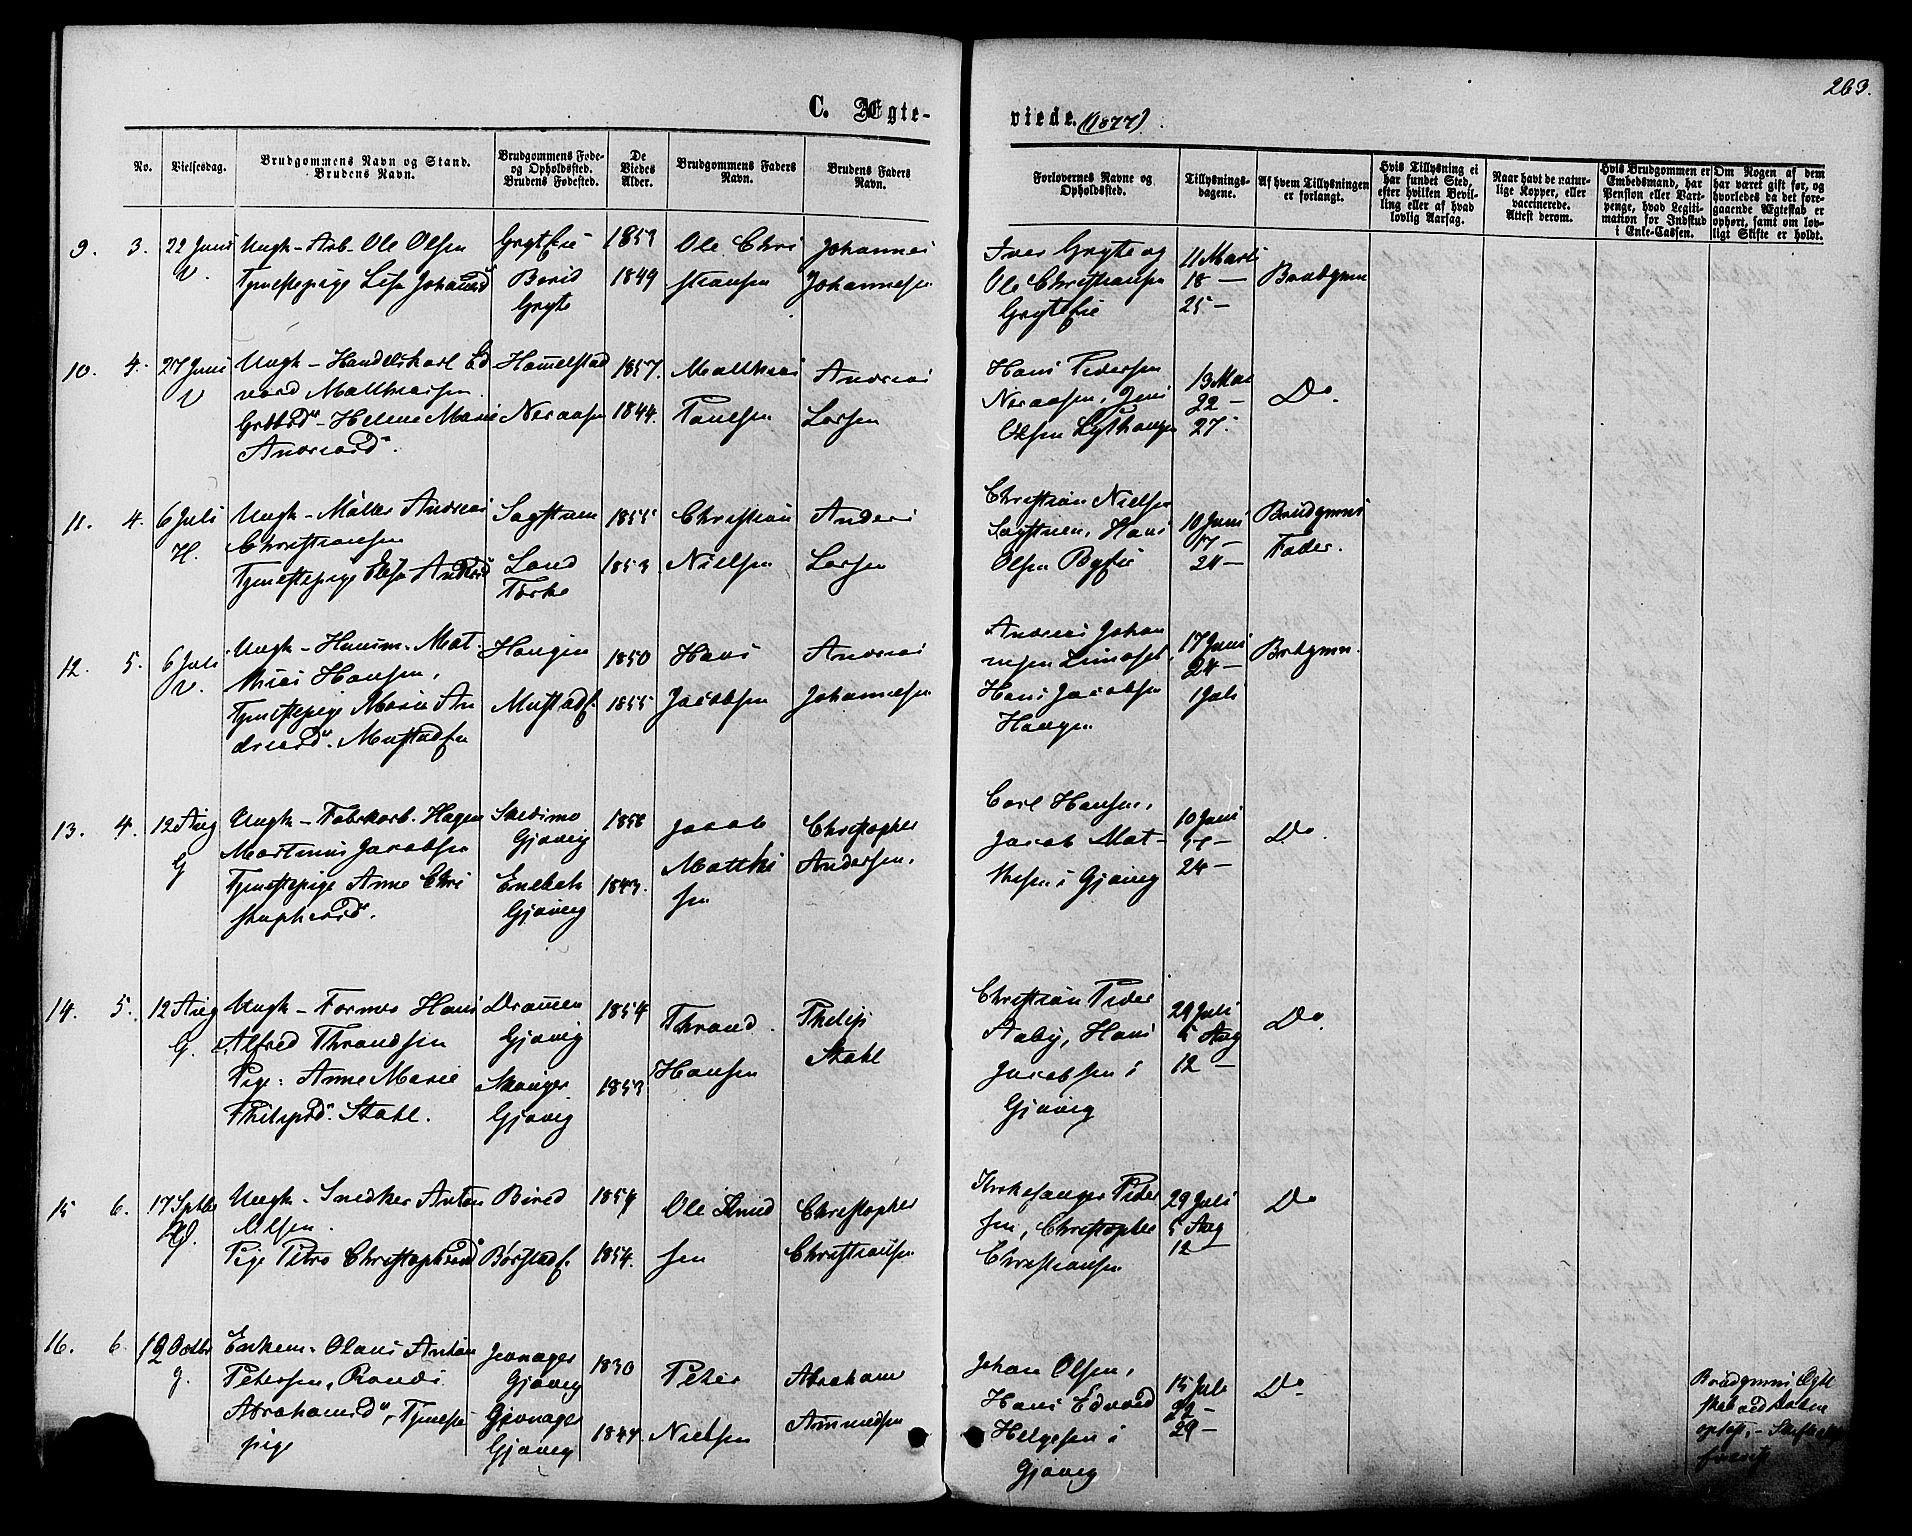 263.
C. Ægte-
viede. (1877)
No.
Vielsesdag.
Brudgommens Navn og Stand.
Brudens Navn.
Brudgommens Føde-
og Opholdssted.
Brudens Fødested.
De
Viedes
Alder.
Brudgommens Faders
Navn.
Brudens Faders
Navn.
Forlovernes Navne og
Opholdssted.
Tillysnings-
dagene.
Af hvem Tillysningen
er forlangt.
Hvis Tillysning ei
har fundet Sted,
efter hvilken Bevil-
ling eller af hvad
lovlig Aarsag.
Naar havt de natur-
lige Kopper, eller
vaccinerede.
Attest derom.
Hvis Brudgommen er
Embedsmand, har
Pension eller Vart-
penge, hvad Legiti-
mation for Indskud
i Enke-Cassen.
Om Nogen af dem
har været gift før, og
hvorledes da det fore-
gaaende Ægteskab er
ophørt, samt om lov-
ligt Skifte er holdt.
9. 3. 22 Juni Ungk - Arb. Ole Olsen 1851 Ole Chri Johannes
V. Tjenestepige Lisa Johannesd 1849 stiansen Johannesen
Gryte
Iver Gryte og 11 Marts
Ole Christiansen 18 - Brudgmn
25 -
10. 4. 27 Juni Ungk - Handelskarl Ed Hammelstad 1857. Matthias Andreas
V vard Matthiassen
Helene Marie Neraasen 1844. Paulsen Larsen
Andreasd.
Hans Pedersen 13 Mai
Neraasen, Jens 22 - Do.
Olsen 27.
11. 4. 6 Juli Ungk - Møller Andreas Sagstuen 1855 Christian Anders
H. Christiansen
Tjenestepige Elise Andersd Land 1853 Nielsen Larsen
Christian Nielsen 10 Juni Brudgmns
Sagstuen, Hans 17 - Fader.
Olsen 24 -
12. 5. 6 Juli Ungk - Huusm. Mat Haugen 1850 Hans Andreas
V. thias Hansen,
Tjenestepige Marie An Mustadf. 1855 Jacobsen Johannesen
dreasd. Mustad
Andreas Johan 17 Juni Brdgmn.
nesen 24 -
Hans Jacobsen 1 Juli
Haugen
13. 4. 12 Aug Ungk - Fabrkarb. Hagen Skedsmo 1858 Jacob Christopher
G Martinus Jacobsen Gjøvig Matthi Andersen.
Tjenestepige Anne Chri Enebak 1843. sen
stophersd. Gjøvig
Carl Hansen, 10 Juni
Jacob Mat- 17 - Do.
thisen i Gjøvig 24 -
14. 5. 12 Aug Ungk - Former Hans Drammen 1854 Thrond Philip
G. Alfred Throndsen Gjøvig Stahl
Pige: Anne Marie 1853 Hansen
Philipsd. Stahl. Gjøvig
Christian Peder 29 Juli
Aaby, Hans 5 Aug Do.
Jacobsen i 12 -
Gjøvig
15 6. 17 Sptbr Ungk - Snedker Anton Bired 1854 Ole Knud Christopher
Olsen.
Pige Petra Christophersd Børstadf. 1854. sen Christiansen
Kirkesanger Peder 29 Juli
sen, Christopher 5 Aug Do
Christiansen 12 -
16. 6 12 Octbr Enkem. Olaus Anton Jevnager 1830 Peter Abraham
g. Petersen, Randi Gjøvig
Abrahamsd., Tjeneste- Gjevnager 1844 Nielsen Ammundsen
pige Gjøvig
Johan Olsen, 15 Juli
Hans Edvard 22 - Do
Helgesen i 29 -
Gjøvig
Brudgmns Egte
skab ved Døden